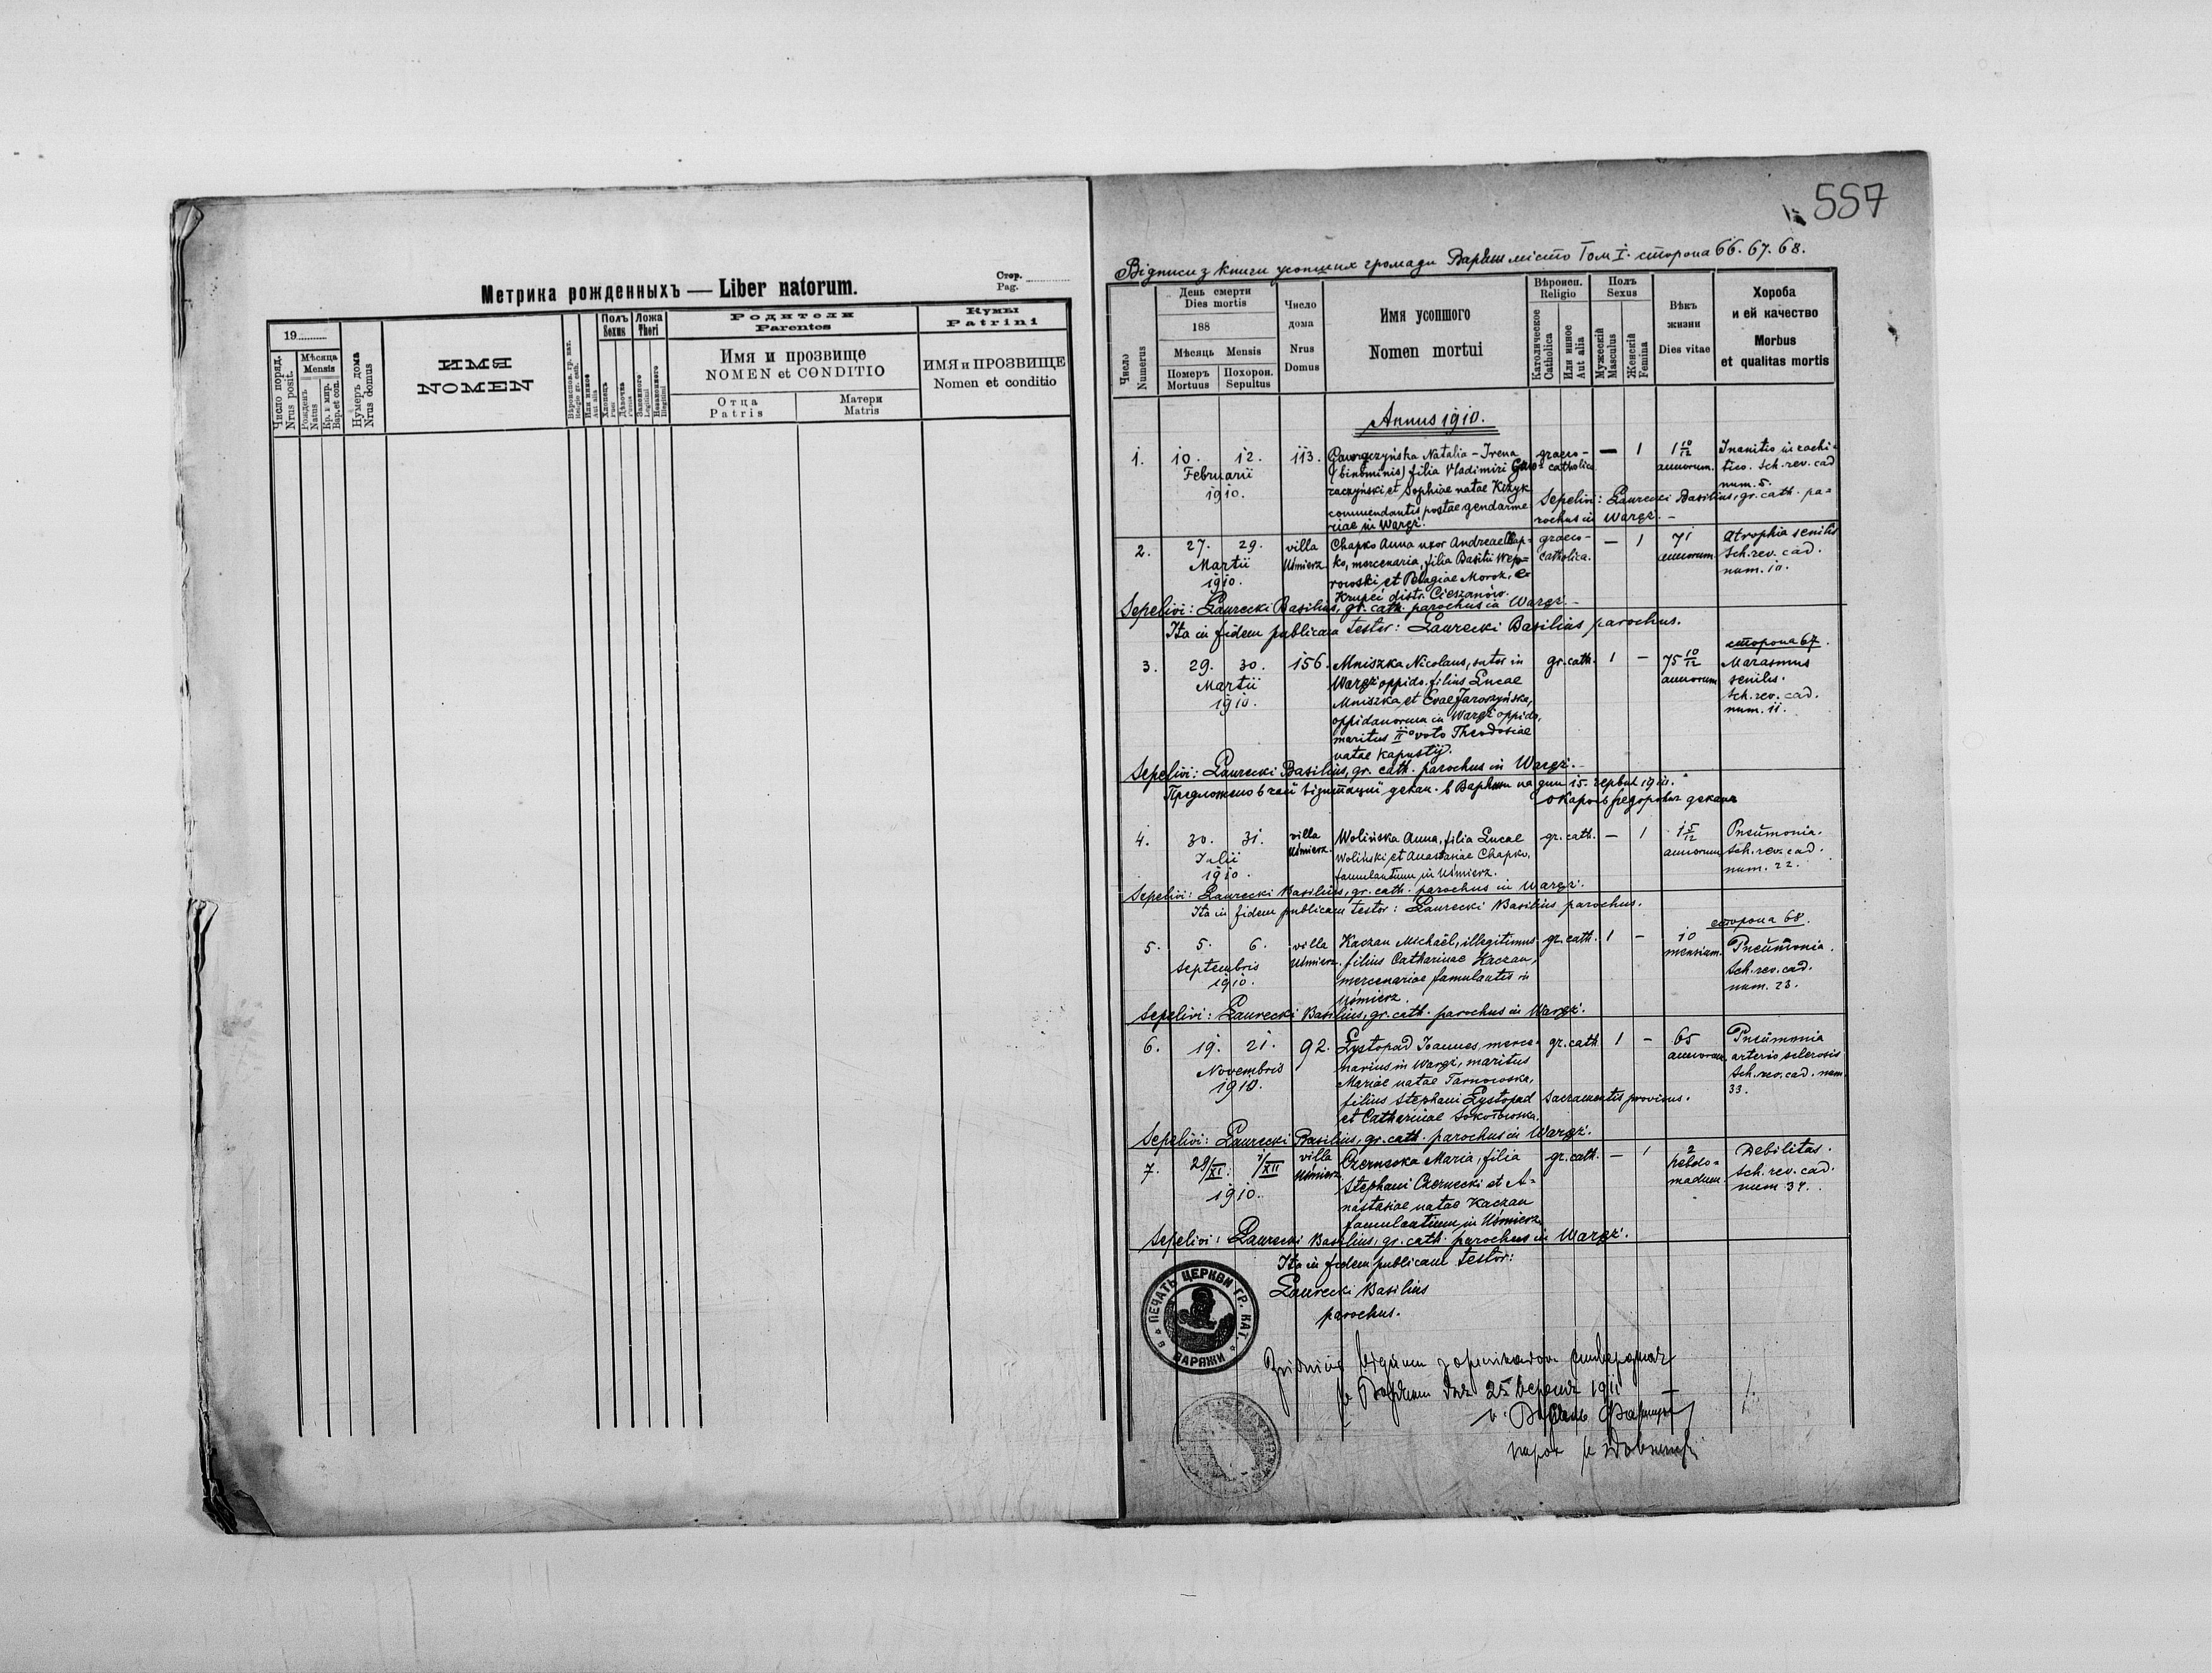 Метрика рожденныхъ — Liber natorum.
Стор.
Pag.
19
Число поряд.
Nrus posit.
Мѣсяца
Mensis
Рожденъ
Natus
Кр. и мир.
Bap. et con.
Нумеръ дома
Nrus domus
ИМЯ
NOMEN
Вѣроиспов. гр. кат.
Religio gr. cath.
Или инное
Aut alia
Полъ
Sexus
Хлопець
Puer
Дѣвочка
Puella
Ложа
Thori
Законного
Legitimi
Незаконного
Illegitimi
Родители
Parentes
Имя и прозвище
NOMEN et CONDITIO
Отца
Patris
Матери
Matris
Кумы
Patrini
ИМЯ и ПРОЗВИЩЕ
Nomen et conditio
557
Відписи з книги усопших громади Варяж місто Том I. сторона 66. 67. 68.
Число
Numerus
День смерти
Dies mortis
188
Мѣсяць Mensis
Померъ
Mortuus
Похорон.
Sepultus
Число
дома
Nrus
Domus
Имя усопшого
Nomen mortui
Вѣроисп.
Religio
Католическое
Catholica
Или инное
Aut alia
Полъ
Sexus
Мужескій
Masculus
Женскій
Femina
Вѣкъ
жизни
Dies vitae
Хороба
и ей качество
Morbus
et qualitas mortis
Annus 1910.
1. 10. 12. 113. Natalia - Irena graeco- — 1 1 10/12 Inanitio in rachi-
Februarii (binominis) filia Vladimiri Gaw- catholica annorum. tico. Sch. rev. cad
1910. raczyński et Sophiae natae Kizyk num. 5.
commendantis postae gendarme Sepelivi: Laurecki Basilius, gr. cath. pa-
riae in Waręż. rochus in Waręż. —
2. 27. 29. villa Chapko Anna uxor Andreae Chap- graeco- — 1 71 Atrophia senilis
Martii Uśmierz. ko, mercenaria, filia Basilii Wep- catholica. annorum Sch. rev. cad.
1910. rowski et Pelagiae Morok, e num. 10.
Krupci distr. Cieszanów.
Sepelivi: Laurecki Basilius, gr. cath. parochus in Waręż. —
Ita in fidem publicam testor: Laurecki Basilius parochus.
сторона 67.
3. 29. 30. 156. Mniszka Nicolaus, sutor in gr. cath. 1 — 75 10/12 Marasmus
Martii Waręż oppido, filius Lucae annorum senilis.
1910. Mniszka et Evae Jaroszyńska, Sch. rev. cad.
oppidanorum in Waręż oppido, num. 11.
maritus IIo voto Theodosiae
natae Kapustij.
Sepelivi: Laurecki Basilius, gr. cath. parochus in Waręż. —
Предложено в часї візитациї декан. в Варяжи на дни 15. червця 1910.
4. 30. 31. villa Wolińska Anna, filia Lucae gr. cath. — 1 1 5/12 Pneumonia.
Julii Uśmierz. Woliński et Anastasiae Chapko, annorum Sch. rev. cad.
1910. famulantium in Uśmierz. num. 22.
Sepelivi: Laurecki Basilius, gr. cath. parochus in Waręż.
Ita in fidem publicam testor: Laurecki Basilius parochus.
сторона 68.
5. 5. 6. villa Kaczan Michaël, illegitimus gr. cath. 1 — 10 Pneumonia.
Septembris Uśmierz. filius Catharinae Kaczan, mensium. Sch. rev. cad.
1910. mercenariae famulantis in num. 23.
Uśmierz.
Sepelivi: Laurecki Basilius, gr. cath. parochus in Waręż.
6. 19. 21. 92. Lystopad Joannes, merce- gr. cath. 1 — 65 Pneumonia
Novembris narius in Waręż, maritus annorum. arterio sclerosis
1910. Mariae natae Tarnowska, Sch. rev. cad. num.
filius Stephani Lystopad Sacramentis provisus. 33.
et Catharinae Sokołowska.
Sepelivi: Laurecki Basilius, gr. cath. parochus in Waręż.
7. 29/XI. 1/XII villa Czernecka Maria, filia gr. cath. — 1 2 Debilitas.
1910. Uśmierz Stephani Czernecki et A- hebdo- Sch. rev. cad.
nastasiae natae Kaczan madum. num 34.
famulantium in Uśmierz.
Sepelivi: Laurecki Basilius, gr. cath. parochus in Waręż.
Ita in fidem publicam testor:
Laurecki Basilius
parochus.
ПЕЧАТЬ ЦЕРКВИ ГР. КАТ. В ВАРЯЖИ
25 1911